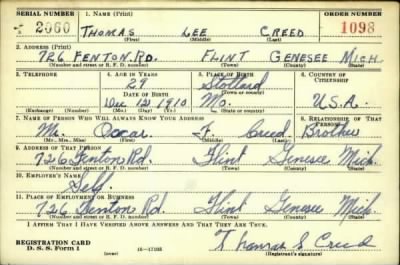 SERIAL NUMBER 1. NAME (Print) ORDER NUMBER
2060 THOMAS LEE CREED 1098
(First) (Middle) (Last)
2. ADDRESS (Print)
726 FENTON. RD. FLINT GENESEE MICH.
(Number and street or R. F. D. number) (Town) (County) (State)
3. TELEPHONE 4. AGE IN YEARS 5. PLACE OF BIRTH 6. COUNTRY OF CITIZENSHIP
29 Stottard
DATE OF BIRTH (Town or county)
Dec 12 1910 Mo. U.S.A.
(Exchange) (Number) (Mo.) (Day) (Yr.) (State or country)
7. NAME OF PERSON WHO WILL ALWAYS KNOW YOUR ADDRESS 8. RELATIONSHIP OF THAT PERSON
Mr. Oscar F. Creed Brother
(Mr., Mrs., Miss) (First) (Middle) (Last)
9. ADDRESS OF THAT PERSON
726 Fenton Rd. Flint Genesee Mich.
(Number and street or R. F. D. number) (Town) (County) (State)
10. EMPLOYER'S NAME
Self
11. PLACE OF EMPLOYMENT OR BUSINESS
726 Fenton Rd. Flint Genesee Mich.
(Number and street or R. F. D. number) (Town) (County) (State)
I AFFIRM THAT I HAVE VERIFIED ABOVE ANSWERS AND THAT THEY ARE TRUE.
REGISTRATION CARD
D. S. S. Form 1 (over) 16—17105 Thomas L Creed
(Registrant's signature)